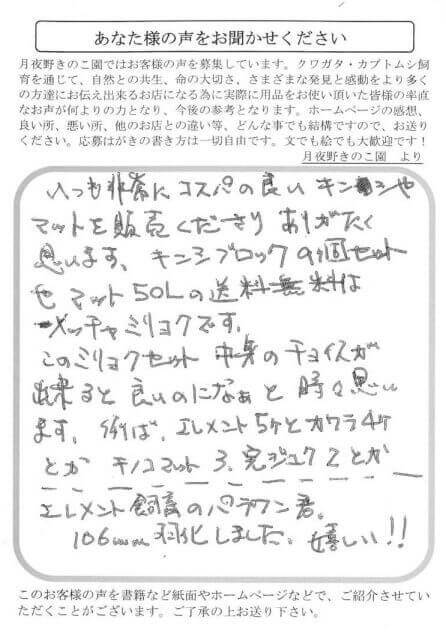 あなた様の声をお聞かせください
月夜野きのこ園ではお客様の声を募集しています。クワガタ・カブトムシ飼
育を通じて、自然との共生、命の大切さ、さまざまな発見と感動をより多く
の方達にお伝え出来るお店になる為に実際に用品をお使い頂いた皆様の率直
なお声が何よりの力となり、今後の参考となります。ホームページの感想、
良い所、悪い所、他のお店との違い等、どんな事でも結構ですので、お送り
ください。応募はがきの書き方は一切自由です。文でも絵でも大歓迎です！
月夜野きのこ園　より
いつも非常にコスパの良い キンシや
マットを販売くださり ありがたく
思います。キンシブロック9ヶ回セット
や マット50Lの送料無料は
メッチャミリョクです。
このミリョクセット 中身のチョイスが
出来ると良いのになぁと 時々思い
ます。例ば、エレメント5ケとカワラ4ケ
とか キノコマット3、完ジュク2とか
エレメント飼育のパラワン君。
106mm羽化しました。嬉しい!!
このお客様の声を書籍など紙面やホームページなどで、ご紹介させてい
ただくことがございます。ご了承の上お送り下さい。